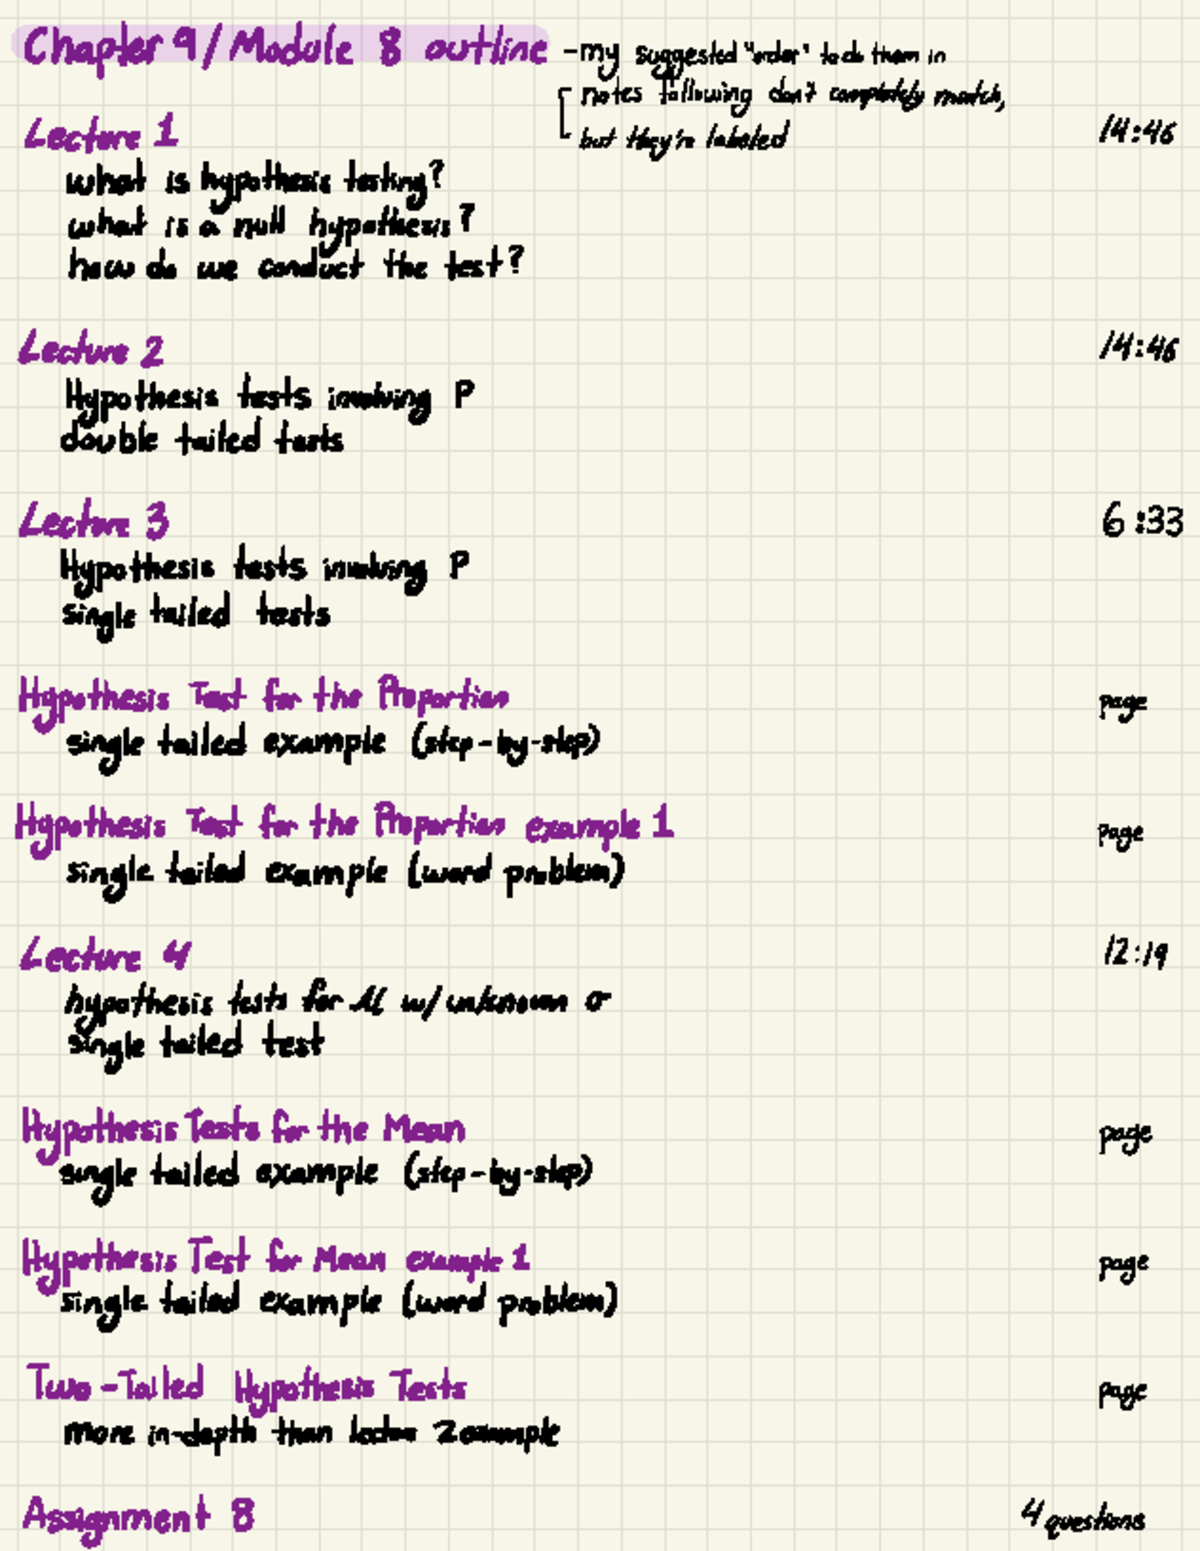 Chapter 9/Module 8 outline -my suggested "order" to do them in
notes following don't completely match,
but they're labeled
Lecture 1 14:46
what is hypothesis testing?
what is a null hypothesis?
how do we conduct the test?
Lecture 2 14:46
Hypothesis tests involving P
double tailed tests
Lecture 3 6:33
Hypothesis tests involving P
single tailed tests
Hypothesis Test for the Proportion page
single tailed example (step-by-step)
Hypothesis Test for the Proportion example 1 page
single tailed example (word problem)
Lecture 4 12:19
hypothesis tests for μ w/ unknown σ
single tailed test
Hypothesis Tests for the Mean page
single tailed example (step-by-step)
Hypothesis Test for Mean example 1 page
single tailed example (word problem)
Two-Tailed Hypothesis Tests page
more in-depth than lecture 2 example
Assignment 8 4 questions